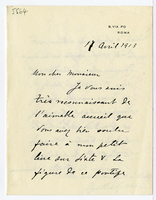 5564
8. VIA PO
ROMA
17 Avril 1913
Mon cher Monsieur
Je vous suis
très reconnaissant de
l'aimable accueil que
vous avez bien voulu
faire à mon petit
livre sur Sixte V. La
figure de ce pontife